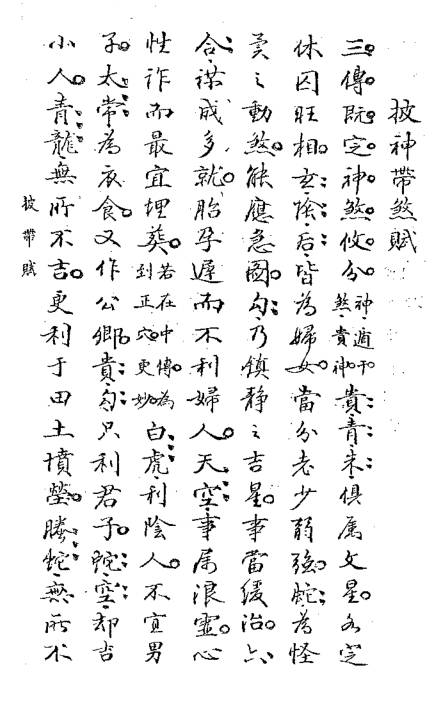 披神帶煞賦
三傳既定神煞攸分神遁干煞貴神貴青朱俱属文星各定
休囚旺相玄陰后皆為婦女當分老少弱強蛇為怪
異之動煞能應急圖勾乃鎮静之吉星事當緩治六
合谋成多就胎孕遲而不利婦人天空事属浪靈心
性诈而最宜埋葬若在中傳為到正穴更妙白虎利陰人不宜男
子太常為衣食又作公卿貴勾只利君子蛇空却吉
小人青龍無所不吉更利于田土墳塋螣蛇無所不
披帶賦